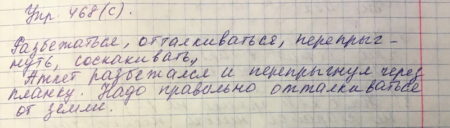 Упр. 468(с).
Разбежаться, отталкиваться, перепрыг-
нуть, соскакивать,
Атлет разбежался и перепрыгнул через
планку. Надо правильно отталкиваться
от земли.